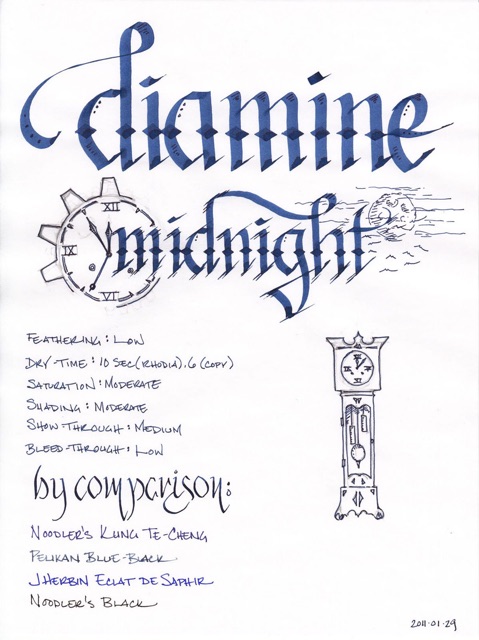 diamine
midnight
XII
IX
VI
Feathering: Low
Dry-Time: 10 sec (Rhodia), 6 (copy)
Saturation: Moderate
Shading: Moderate
Show-Through: Medium
Bleed-Through: Low
by comparison:
Noodler's Kung Te-Cheng
Pelikan Blue-Black
J. Herbin Eclat de Saphir
Noodler's Black
2011·01·29